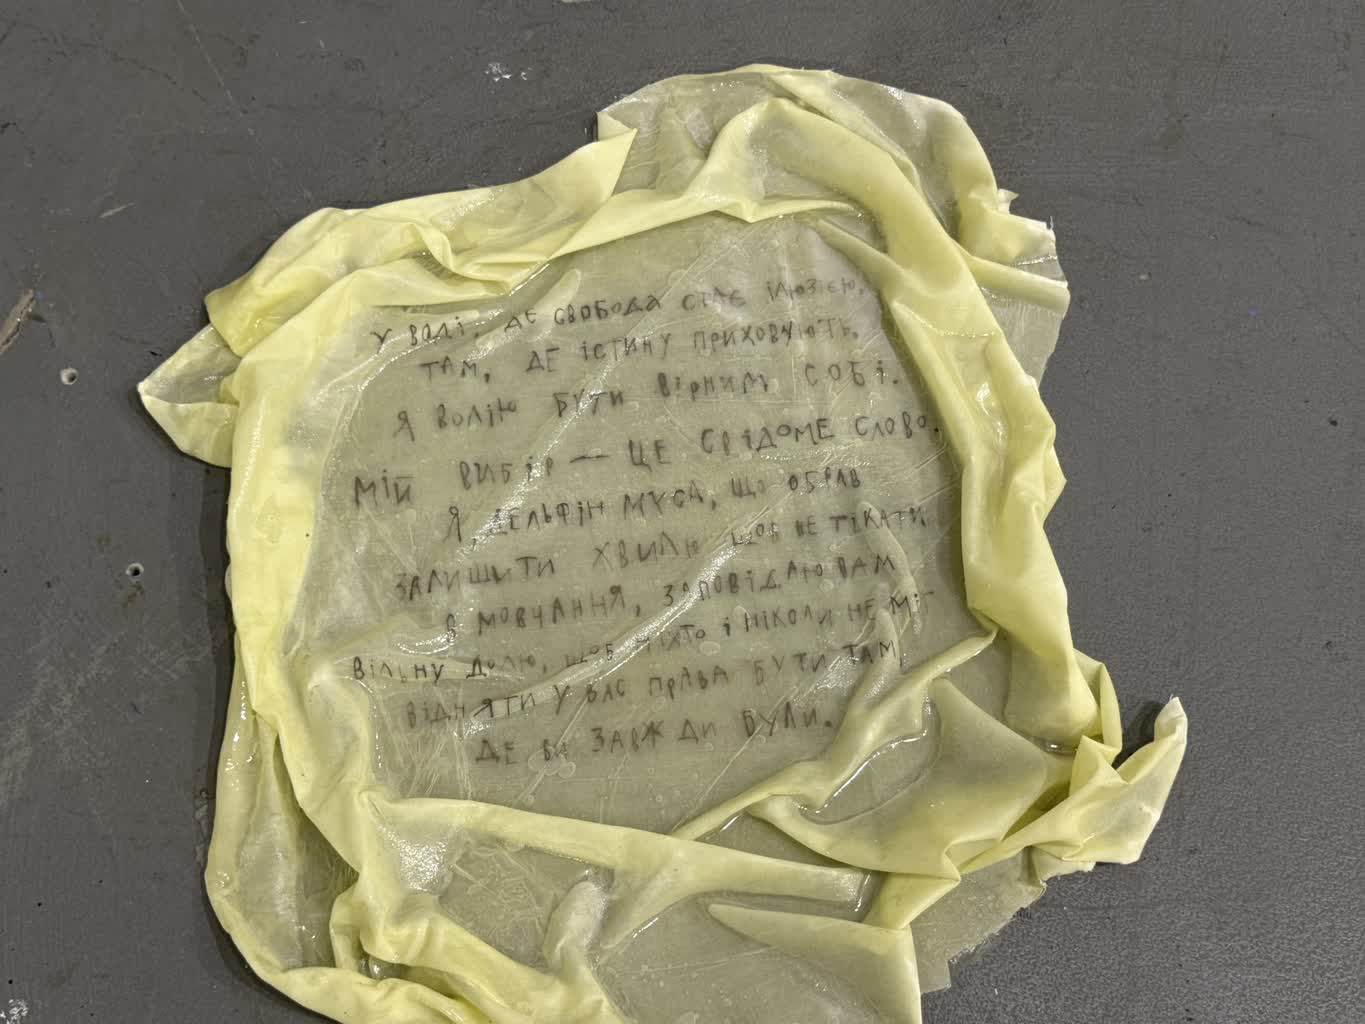 У волі, де свобода стає ілюзією,
там, де істину приховують,
я волію бути вірним собі.
Мій вибір — це свідоме слово.
Я, Дельфін Муса, що обрав
залишити хвилю щоб не тікати
в мовчання, заповідаю вам
вільну долю, щоб ніхто і ніколи не міг
відняти у вас права бути там,
де ви завжди були.